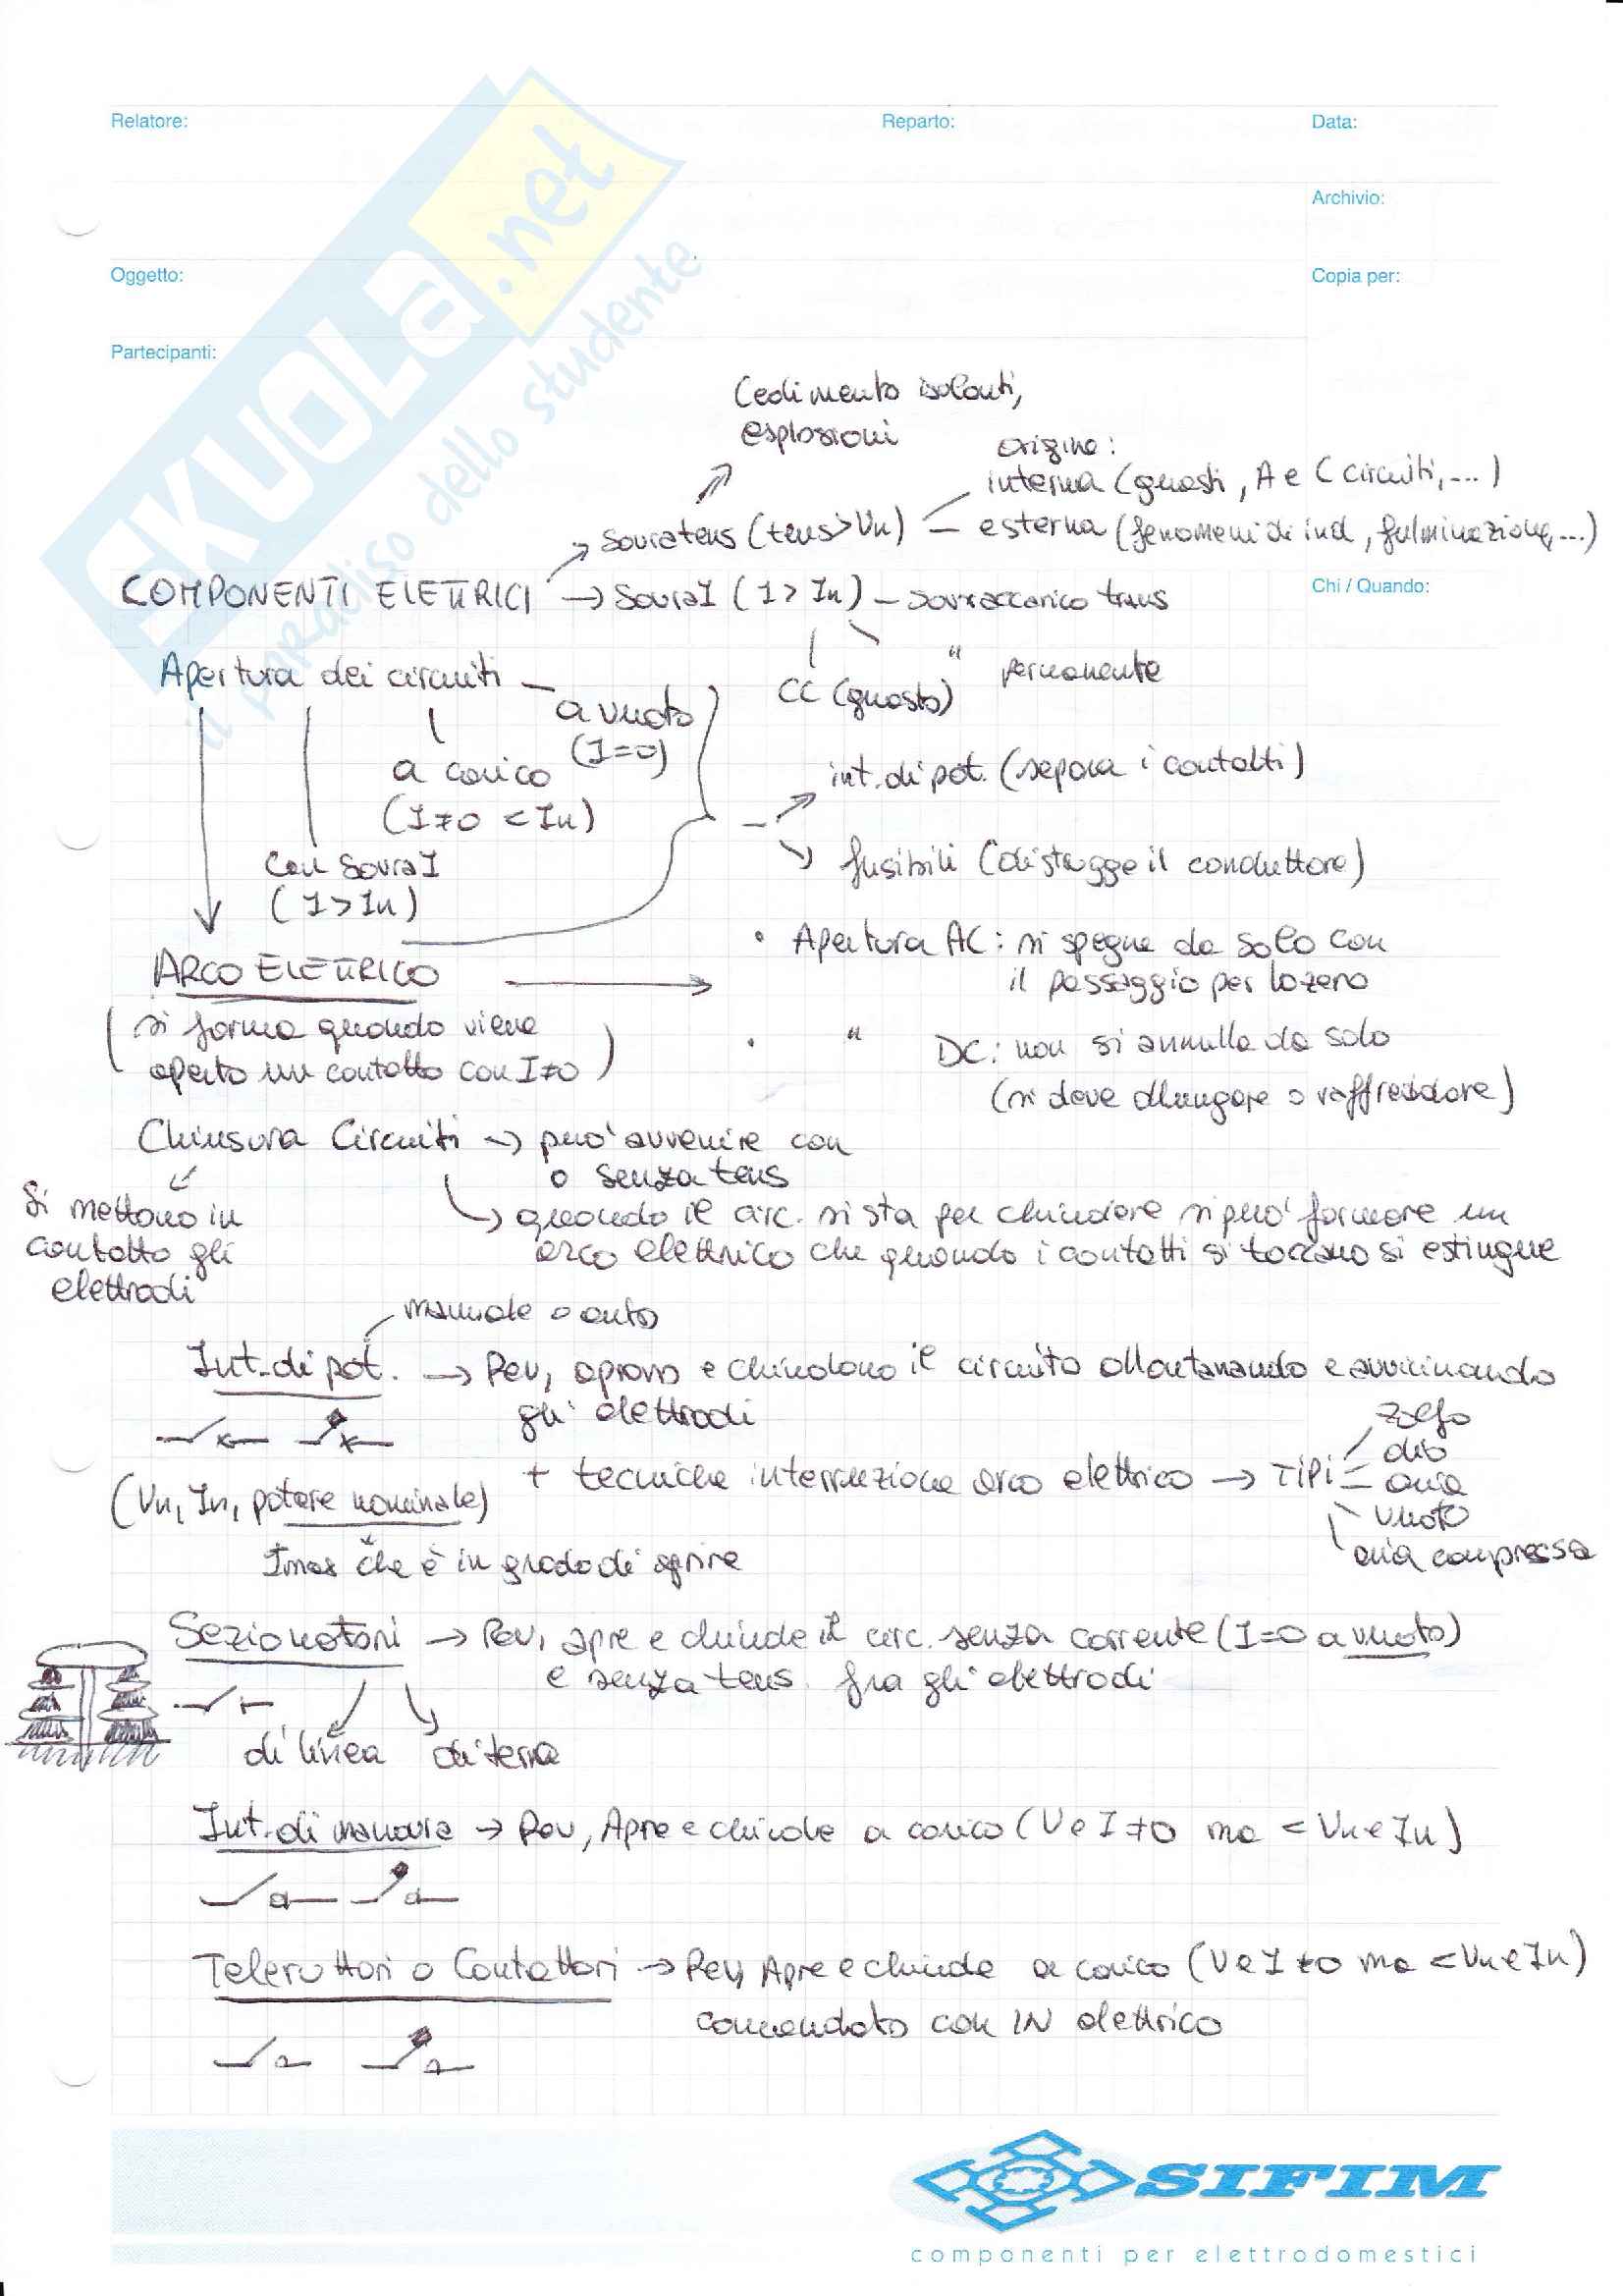 Relatore:
Reparto:
Data:
Archivio:
Oggetto:
Copia per:
Partecipanti:
SKUOLA.net
il paradiso dello studente
Cedimento isolanti,
esplosioni
origine:
interna (guasti, A e C circuiti, ...)
Sovratens (tens > Vn) - esterna (fenomeni di ind, fulminazione, ...)
COMPONENTI ELETTRICI → SovraI (I > In) - sovraccarico trans
Chi / Quando:
" permanente
CC (guasto)
Apertura dei circuiti
a vuoto
(I=0)
a carico
(I≠0 < In)
Con SovraI
(I > In)
int. di pot. (separa i contatti)
fusibili (distrugge il conduttore)
ARCO ELETTRICO →
(si forma quando viene
aperto un contatto con I≠0)
• Apertura AC: si spegne da solo con
il passaggio per lo zero
• " DC: non si annulla da solo
(si deve allungare o raffreddare)
Chiusura Circuiti → puo' avvenire con
o senza tens
Si mettono in
contatto gli
elettrodi
quando il circ. si sta per chiudere si puo' formare un
arco elettrico che quando i contatti si toccano si estingue
manuale o auto
Int. di pot. → Rev, aprono e chiudono il circuito allontanando e avvicinando
gli elettrodi
+ tecniche interruzione arco elettrico → TIPI
zolfo
olio
aria
vuoto
aria compressa
(Vn, In, potere nominale)
Imax che è in grado di aprire
Sezionatori → Rev, apre e chiude il circ. senza corrente (I=0 a vuoto)
e senza tens. fra gli elettrodi
di linea
di terra
Int. di manovra → Rev, Apre e chiude a carico (V e I ≠0 ma < Vn e In)
Teleruttori o Contattori → Rev, Apre e chiude a carico (V e I ≠0 ma < Vn e In)
comandato con IN elettrico
SIFIM
componenti per elettrodomestici